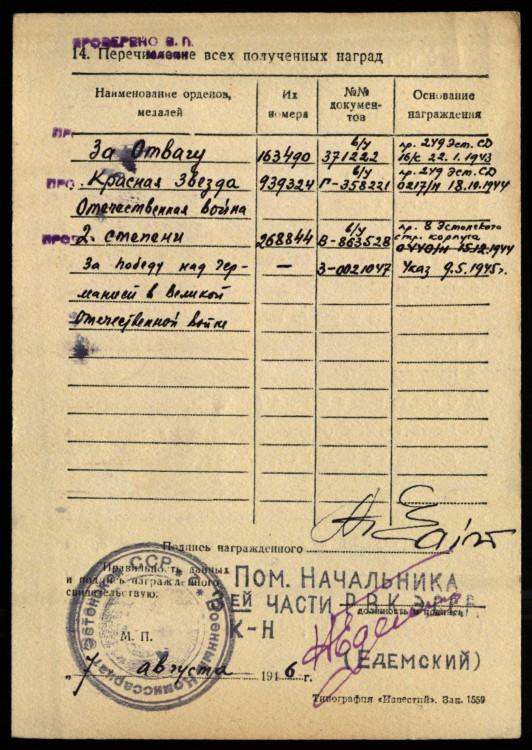 ПРОВЕРЕНО В. П.
14. Перечисление всех полученных наград
Наименование орденов, медалей
Их номера
№№ документов
Основание награждения
За Отвагу 163490 б/у 371222 пр. 249 Эст. СД 16/с 22.1.1943
Красная Звезда 939324 б/у Г-358221 пр. 249 Эст. СД 0217/н 18.10.1944
Отечественная война
2 степени 268844 б/у В-863528 пр. 8 Эстонского стр. корпуса 0440/н 15.12.1944
За победу над Гер- — З-0021047 Указ 9.5.1945г.
манией в Великой
Отечественной войне
Подпись награжденного
Правильность данных
и подпись награжденного
свидетельствую:
Пом. Начальника
ей части РВК
к-н
(Едемский)
М. П.
„7 августа 1946 г.
Типография «Известий». Зак. 1559